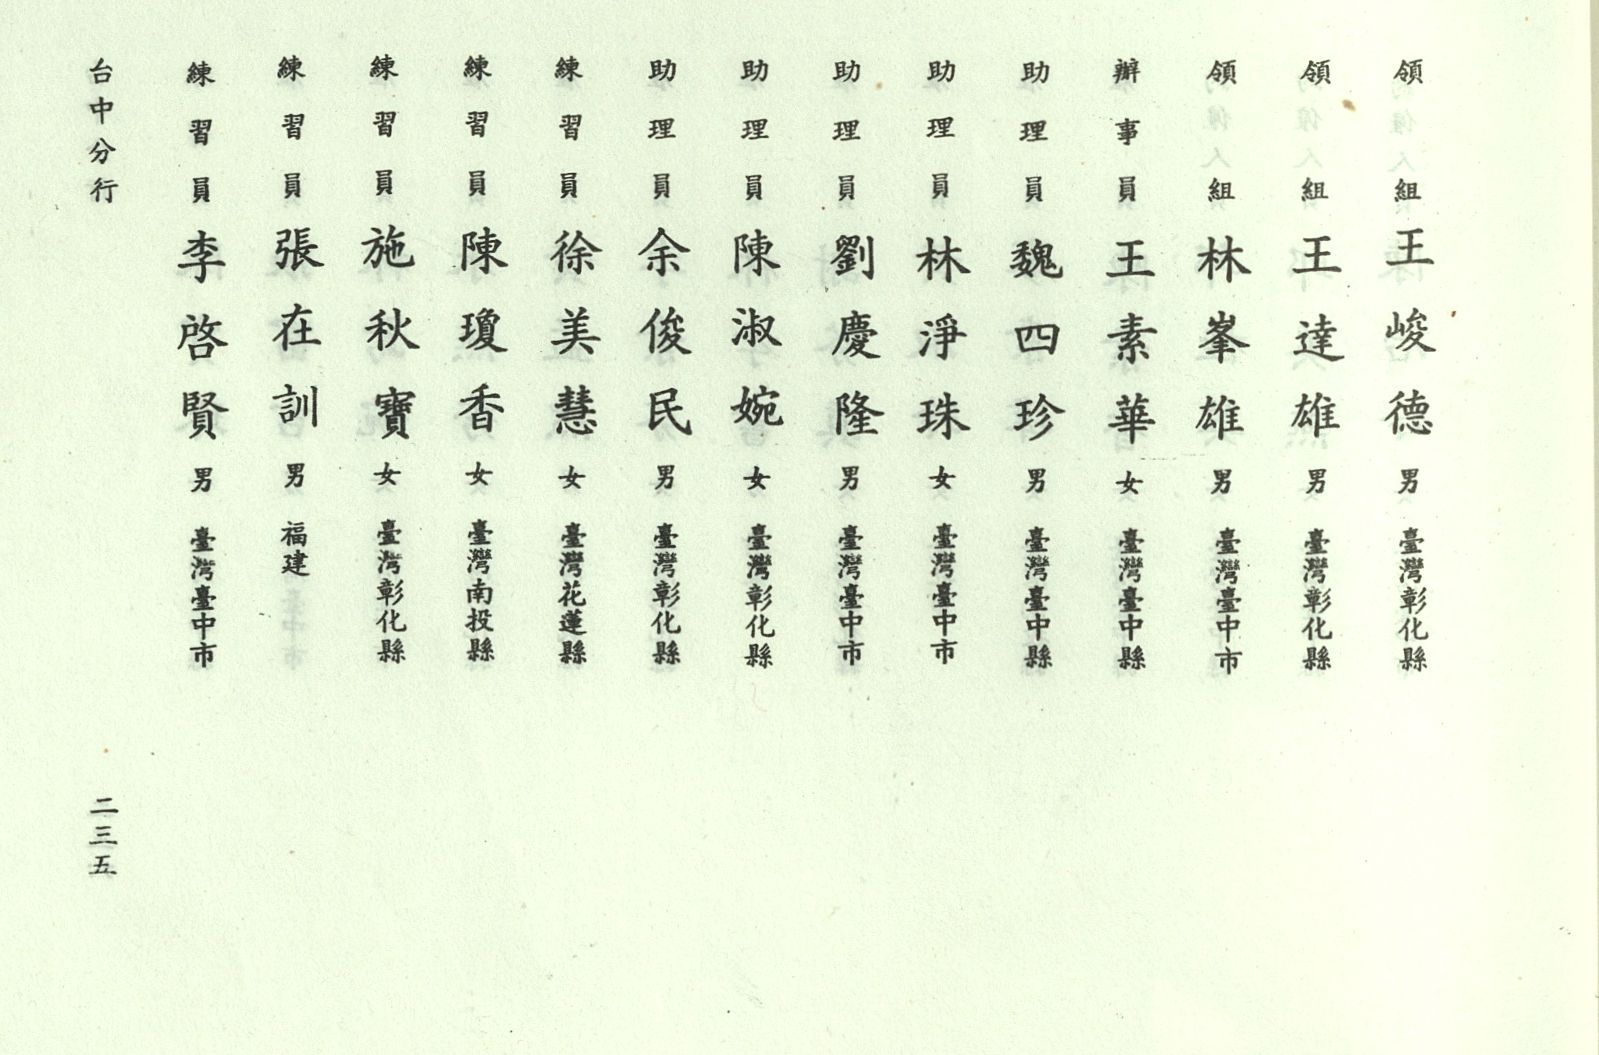 領組 王峻德 男 臺灣彰化縣
領組 王達雄 男 臺灣彰化縣
領組 林峯雄 男 臺灣臺中市
辦事員 王素華 女 臺灣臺中縣
助理員 魏四珍 男 臺灣臺中縣
助理員 林淨珠 女 臺灣臺中市
助理員 劉慶隆 男 臺灣臺中市
助理員 陳淑婉 女 臺灣彰化縣
助理員 余俊民 男 臺灣彰化縣
練習員 徐美慧 女 臺灣花蓮縣
練習員 陳瓊香 女 臺灣南投縣
練習員 施秋寶 女 臺灣彰化縣
練習員 張在訓 男 福建
練習員 李啓賢 男 臺灣臺中市
台中分行 二三五